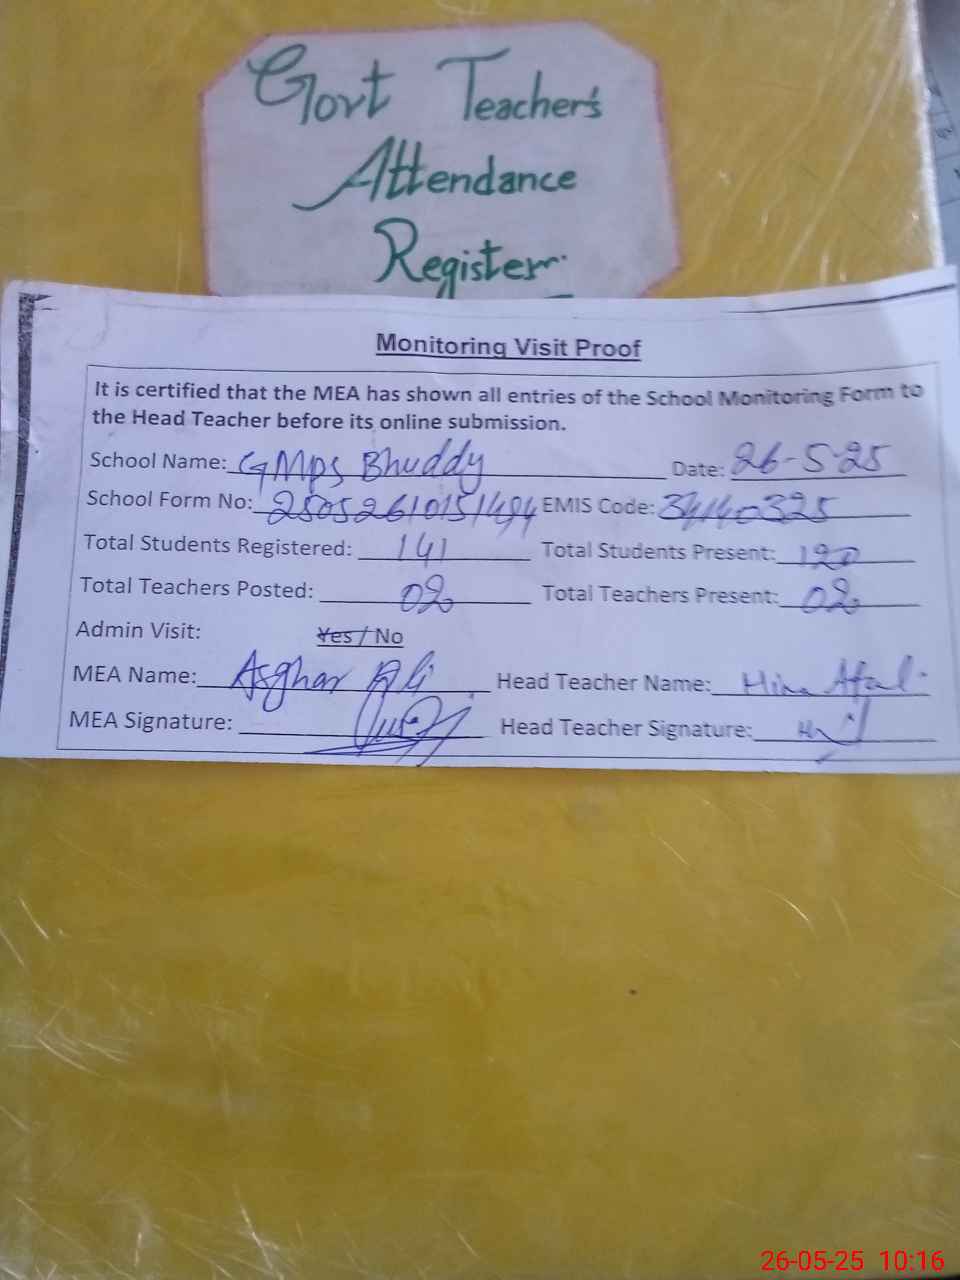 Govt Teacher's
Attendance
Register
Monitoring Visit Proof
It is certified that the MEA has shown all entries of the School Monitoring Form to
the Head Teacher before its online submission.
School Name: GMPS Bhuddy Date: 26-5-25
School Form No: 25052610151494 EMIS Code: 34140325
Total Students Registered: 141 Total Students Present: 120
Total Teachers Posted: 02 Total Teachers Present: 02
Admin Visit: Yes / No
MEA Name: Asghar Ali Head Teacher Name: Hina
MEA Signature: Head Teacher Signature:
26-05-25 10:16